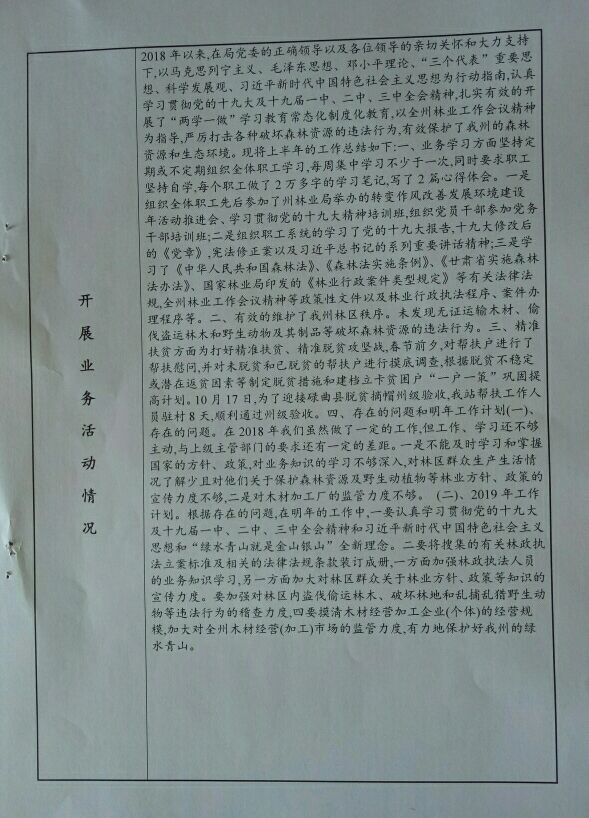 开展业务活动情况
2018年以来,在局党委的正确领导以及各位领导的亲切关怀和大力支持
下,以马克思列宁主义、毛泽东思想、邓小平理论、“三个代表”重要思
想、科学发展观、习近平新时代中国特色社会主义思想为行动指南,认真
学习贯彻党的十九大及十九届一中、二中、三中全会精神,扎实有效的开
展了“两学一做”学习教育常态化制度化教育,以全州林业工作会议精神
为指导,严厉打击各种破坏森林资源的违法行为,有效保护了我州的森林
资源和生态环境。现将上半年的工作总结如下:一、业务学习方面坚持定
期或不定期组织全体职工学习,每周集中学习不少于一次,同时要求职工
坚持自学,每个职工做了2万多字的学习笔记,写了2篇心得体会。一是
组织全体职工先后参加了州林业局举办的转变作风改善发展环境建设
年活动推进会、学习贯彻党的十九大精神培训班,组织党员干部参加党务
干部培训班;二是组织职工系统的学习了党的十九大报告,十九大修改后
的《党章》,宪法修正案以及习近平总书记的系列重要讲话精神;三是学
习了《中华人民共和国森林法》、《森林法实施条例》、《甘肃省实施森林
法办法》、国家林业局印发的《林业行政案件类型规定》等有关法律法
规,全州林业工作会议精神等政策性文件以及林业行政执法程序、案件办
理程序等。二、有效的维护了我州林区秩序。未发现无证运输木材、偷
伐盗运林木和野生动物及其制品等破坏森林资源的违法行为。三、精准
扶贫方面为打好精准扶贫、精准脱贫攻坚战,春节前夕,对帮扶户进行了
帮扶慰问,并对未脱贫和已脱贫的帮扶户进行摸底调查,根据脱贫不稳定
或潜在返贫因素等制定脱贫措施和建档立卡贫困户“一户一策”巩固提
高计划。10月17日,为了迎接碌曲县脱贫摘帽州级验收,我站帮扶工作人
员驻村8天,顺利通过州级验收。四、存在的问题和明年工作计划(一)、
存在的问题。在2018年我们虽然做了一定的工作,但工作、学习还不够
主动,与上级主管部门的要求还有一定的差距。一是不能及时学习和掌握
国家的方针、政策,对业务知识的学习不够深入,对林区群众生产生活情
况了解少且对他们关于保护森林资源及野生动植物等林业方针、政策的
宣传力度不够,二是对木材加工厂的监管力度不够。(二)、2019年工作
计划。根据存在的问题,在明年的工作中,一要认真学习贯彻党的十九大
及十九届一中、二中、三中全会精神和习近平新时代中国特色社会主义
思想和“绿水青山就是金山银山”全新理念。二要将搜集的有关林政执
法立案标准及相关的法律法规条款装订成册,一方面加强林政执法人员
的业务知识学习,另一方面加大对林区群众关于林业方针、政策等知识的
宣传力度。要加强对林区内盗伐偷运林木、破坏林地和乱捕乱猎野生动
物等违法行为的稽查力度,四要摸清木材经营加工企业(个体)的经营规
模,加大对全州木材经营(加工)市场的监管力度,有力地保护好我州的绿
水青山。